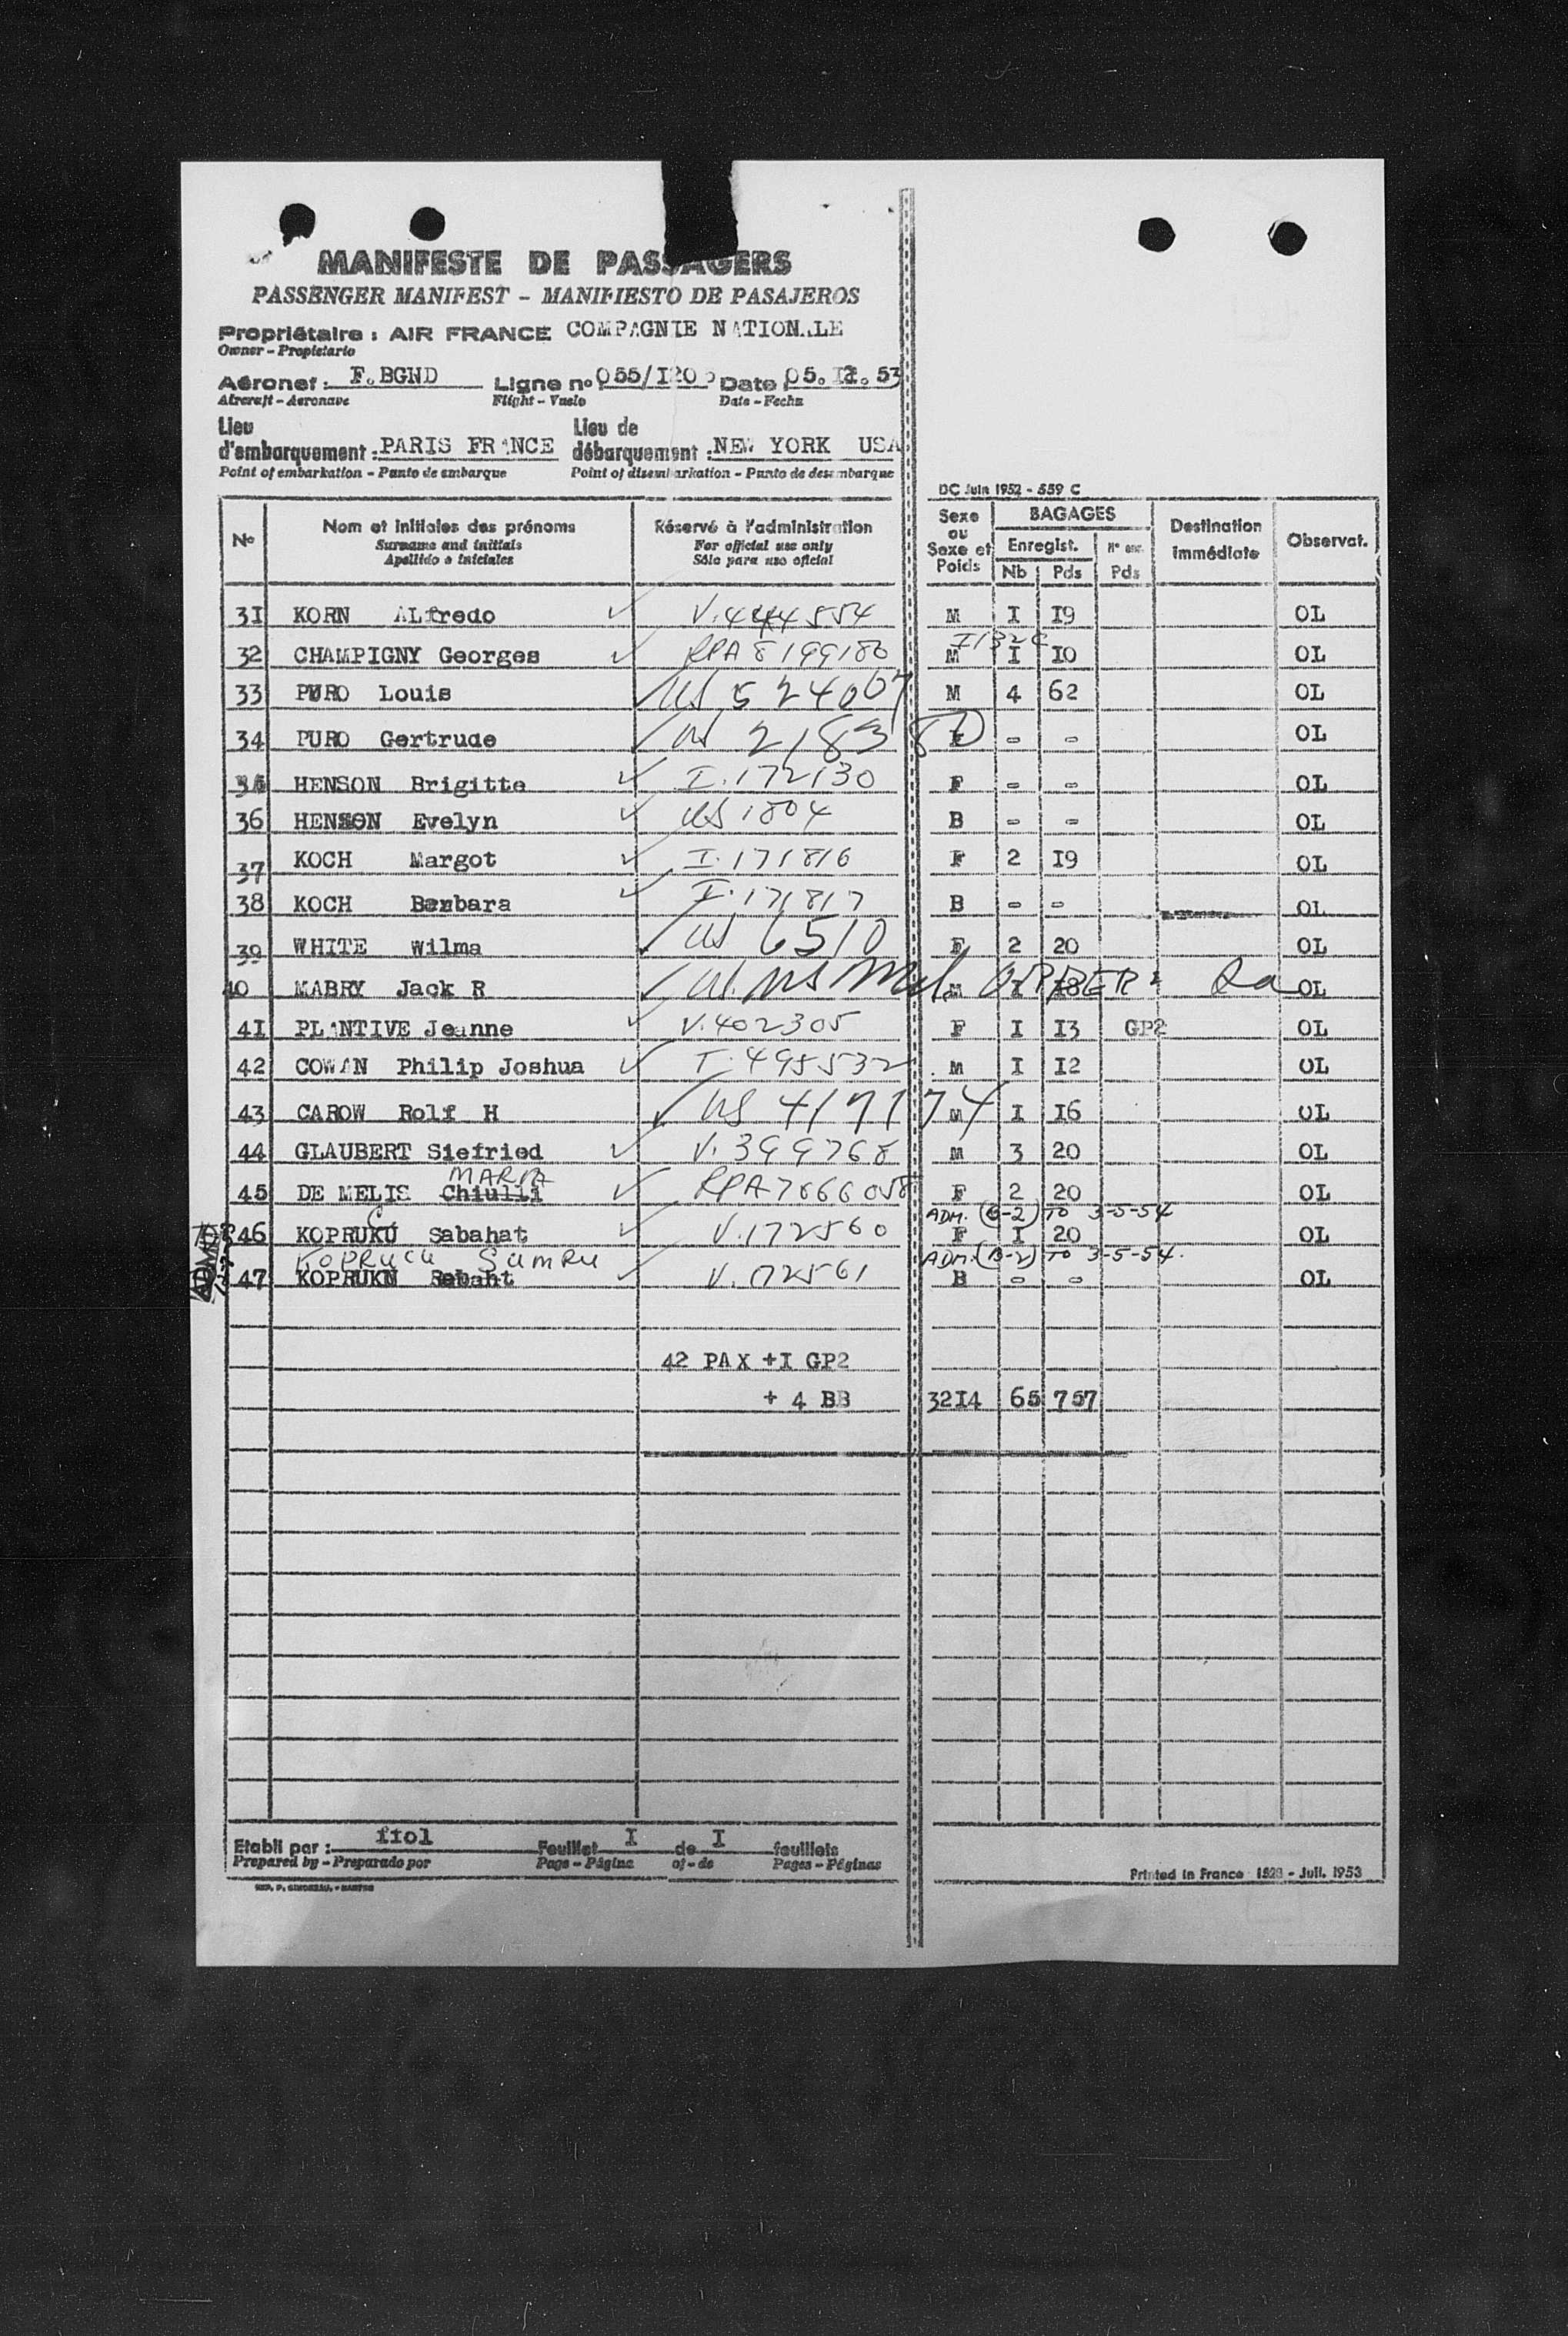 MANIFESTE DE PASSAGERS
PASSENGER MANIFEST - MANIFIESTO DE PASAJEROS
Propriétaire : AIR FRANCE COMPAGNIE NATIONALE
Owner - Propietario
Aéronef : F.BGND Ligne no 055/I205 Date 05.I2.53
Aircraft - Aeronave Flight - Vuelo Date - Fecha
Lieu d'embarquement : PARIS FRANCE Lieu de débarquement : NEW YORK USA
Point of embarkation - Punto de embarque Point of disembarkation - Punto de desembarque
DC Juin 1952 - 559 C
No Nom et initiales des prénoms Réservé à l'administration Sexe ou Sexe et Poids BAGAGES Destination immédiate Observat.
Surname and initials For official use only Enregist.
Apellido e iniciales Sólo para uso oficial Nb Pds Pds
3I KORN ALfredo V.444554 M I I9 OL
32 CHAMPIGNY Georges RPA 8199180 M I I0 OL
33 PURO Louis US 524007 M 4 62 OL
34 PURO Gertrude US 21838 F - - OL
35 HENSON Brigitte I.172130 F - - OL
36 HENSON Evelyn US 1804 B - - OL
37 KOCH Margot I.171816 F 2 I9 OL
38 KOCH Barbara I.171817 B - - OL
39 WHITE Wilma US 6510 F 2 20 OL
40 MABRY Jack R US M I I8 OL
4I PLANTIVE Jeanne V.402305 F I I3 GP2 OL
42 COWAN Philip Joshua I.495532 M I I2 OL
43 CAROW Rolf H US 417174 M I I6 OL
44 GLAUBERT Siefried V.399768 M 3 20 OL
MARIA
45 DE MELIS Chiulli RPA7866058 F 2 20 OL
ADM. (B-2) TO 3-5-54
C
46 KOPRUKU Sabahat V.172560 F I 20 OL
KOPRUCU SUMRU ADM. (B-2) TO 3-5-54.
47 KOPRUKN Rebaht V.172561 B - - OL
42 PAX + I GP2
+ 4 BB 32I4 65 757
Etabli par : fiol Feuillet I de I feuillets
Prepared by - Preparado por Page - Página of - de Pages - Páginas
Printed in France - Juil. 1953